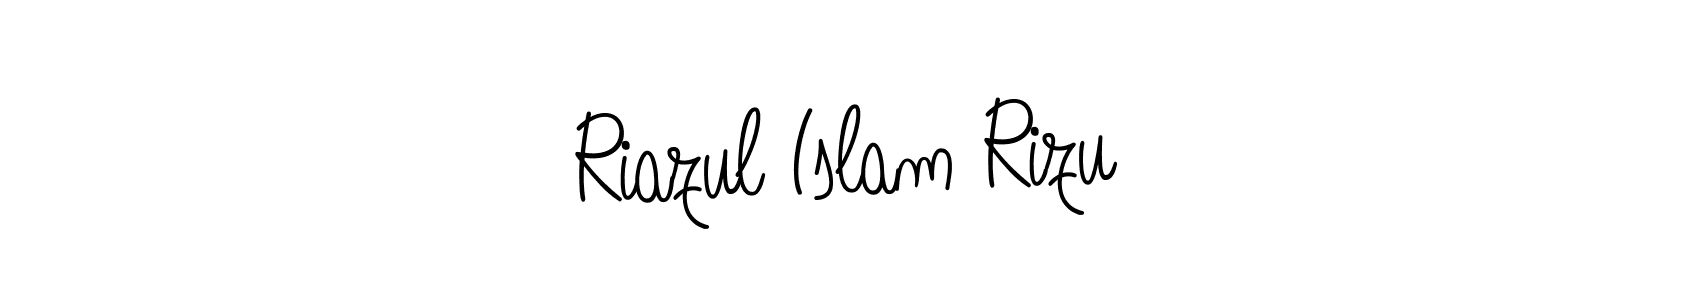 Riazul Islam Rizu